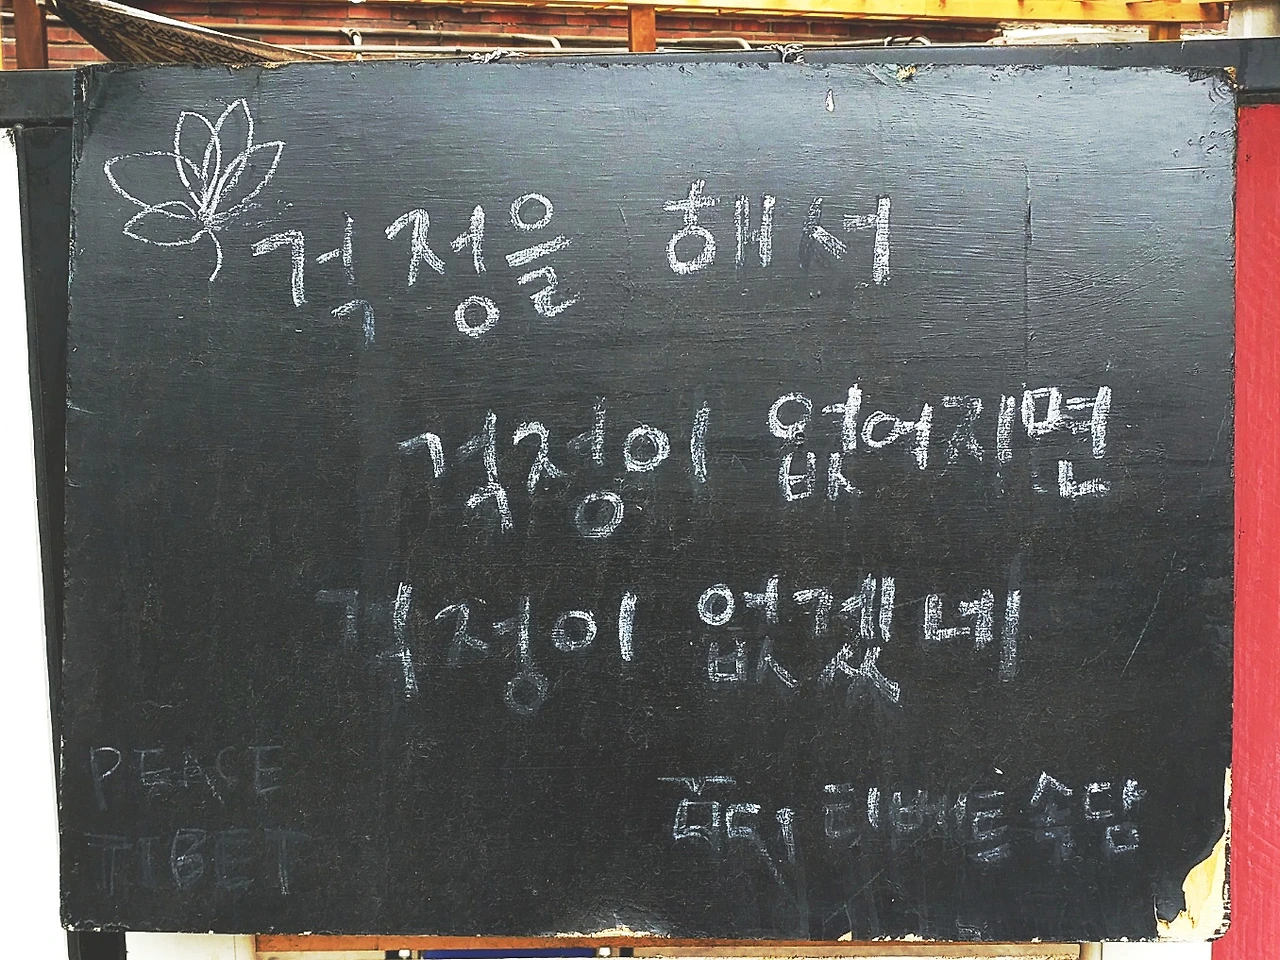 걱정을 해서
걱정이 없어지면
걱정이 없겠네
티베트 속담
PEACE
TIBET